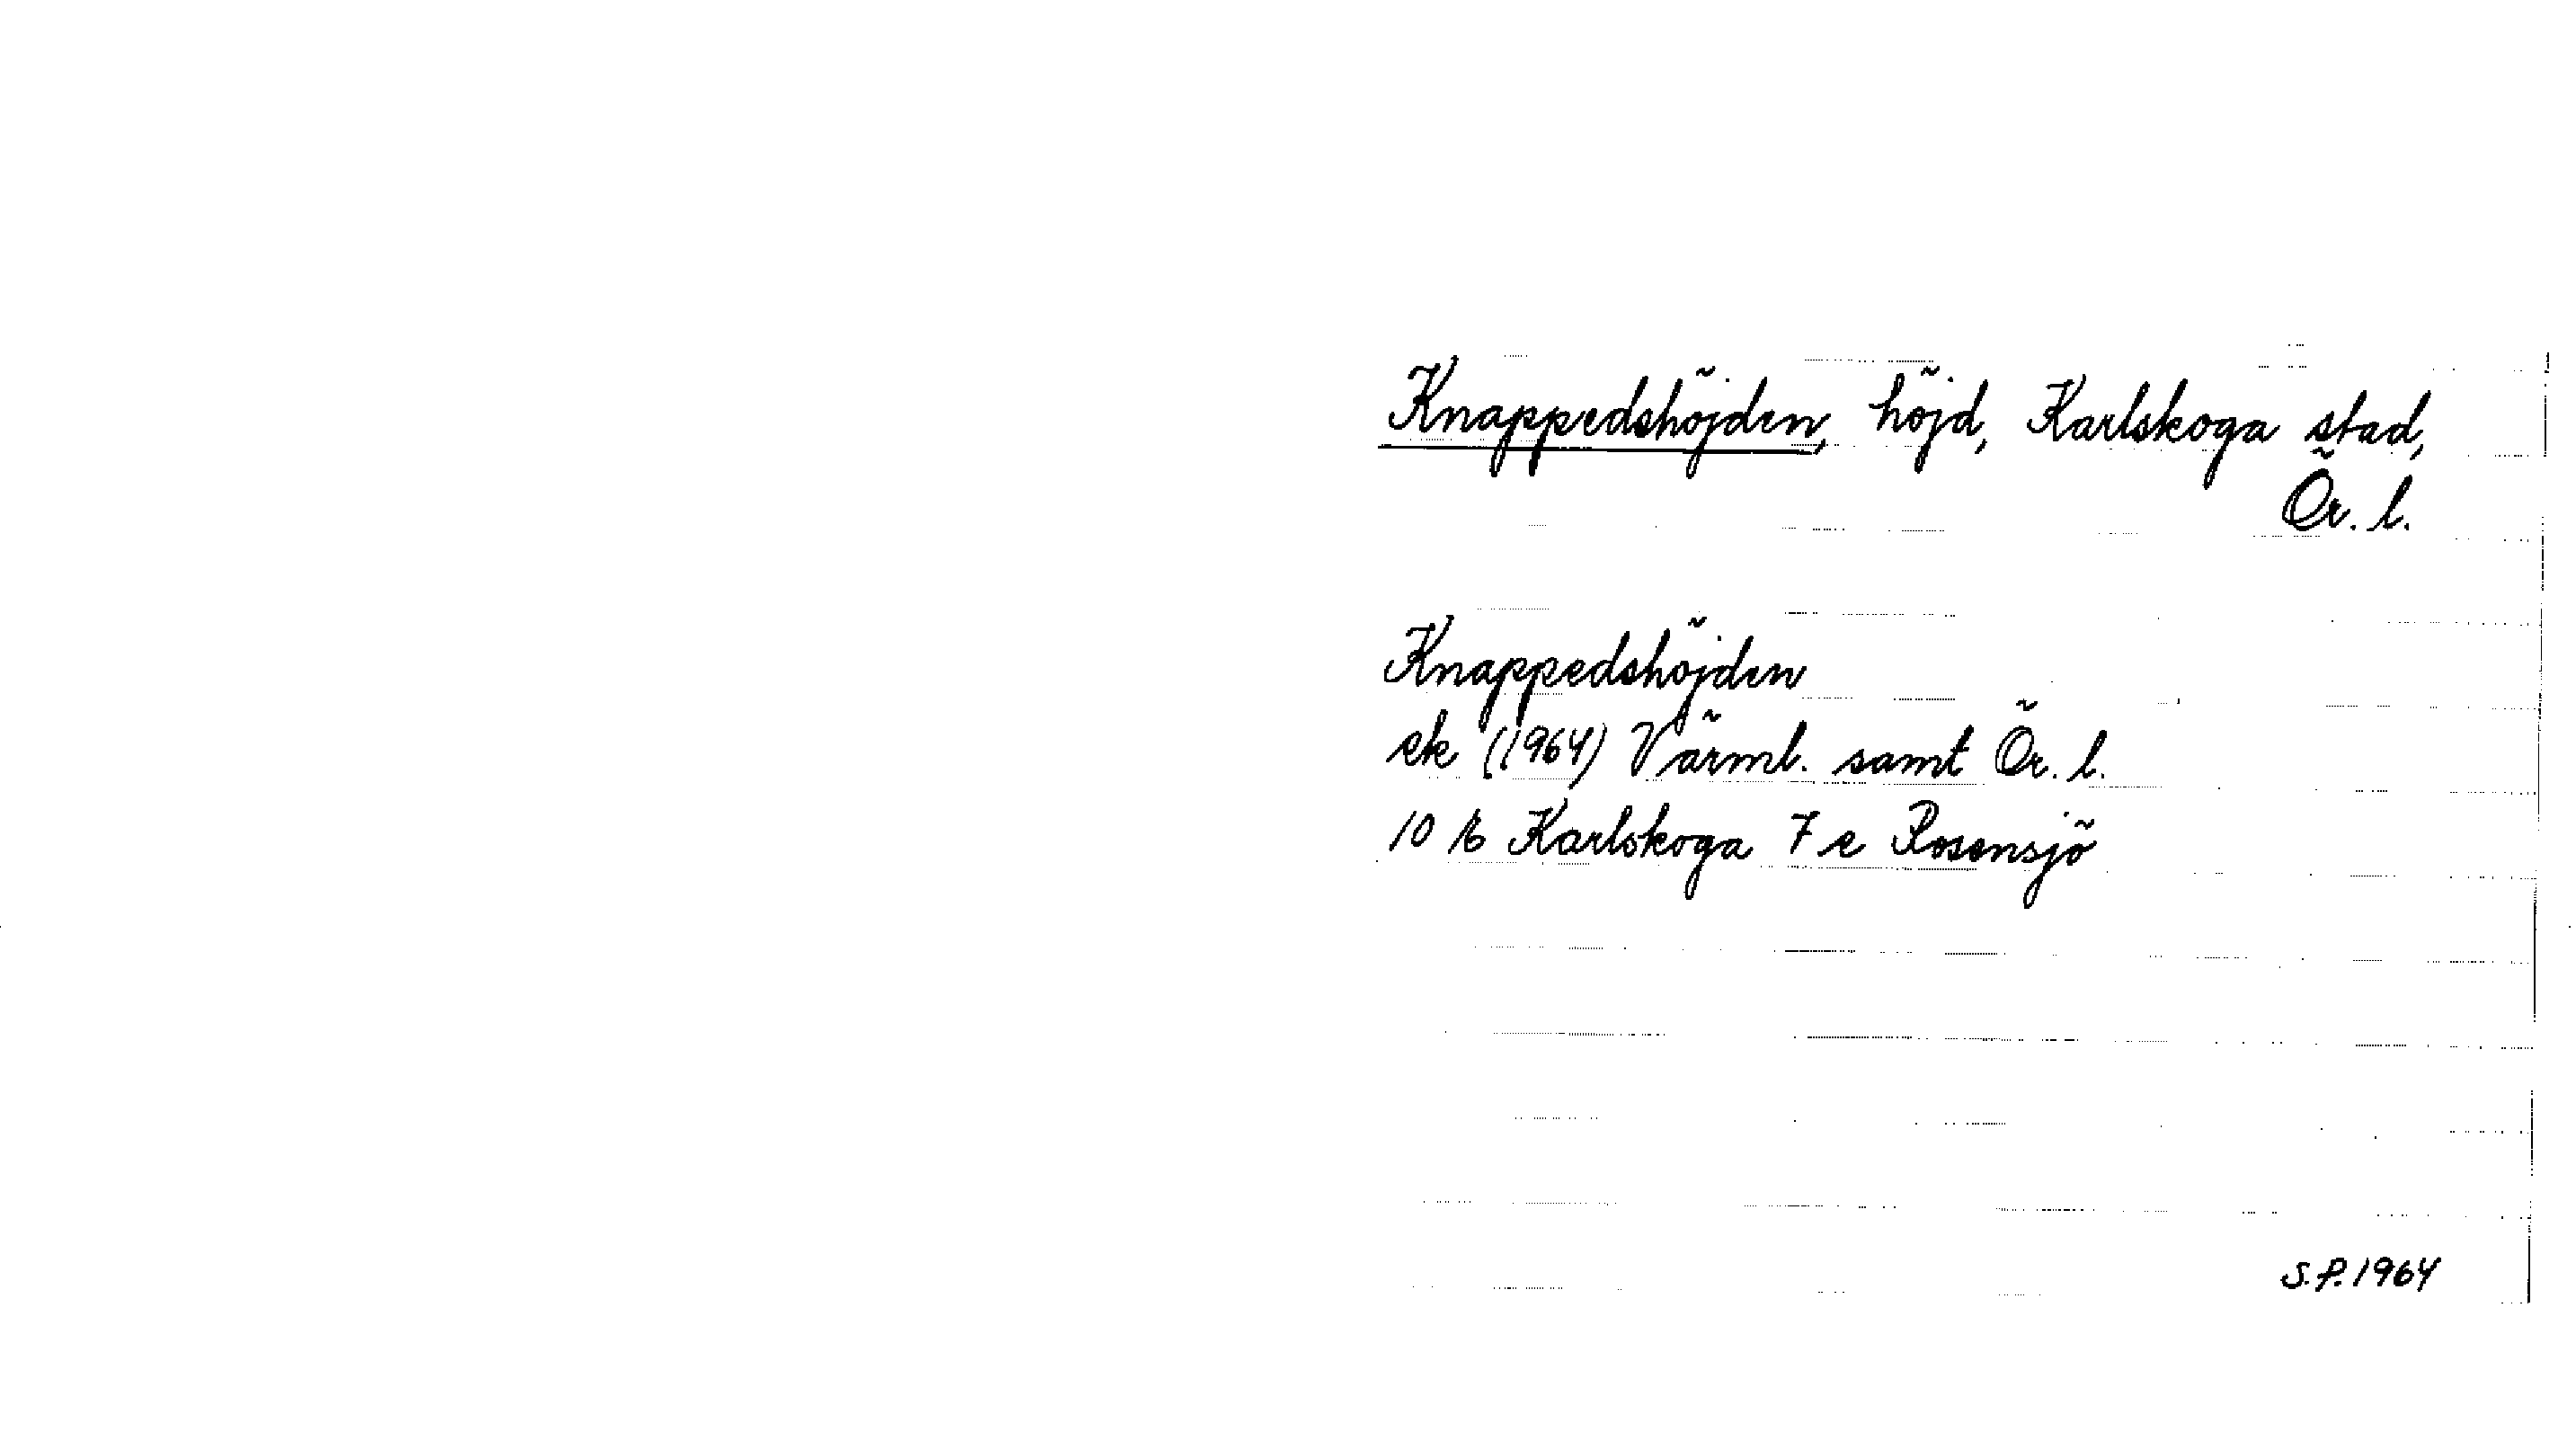 Knappedshöjden, höjd, Karlskoga stad,
Ör. l.
Knappedshöjden
ek (1964) Värml. samt Ör. l.
10 E Karlskoga 7 e Rosensjö
S.P. 1964